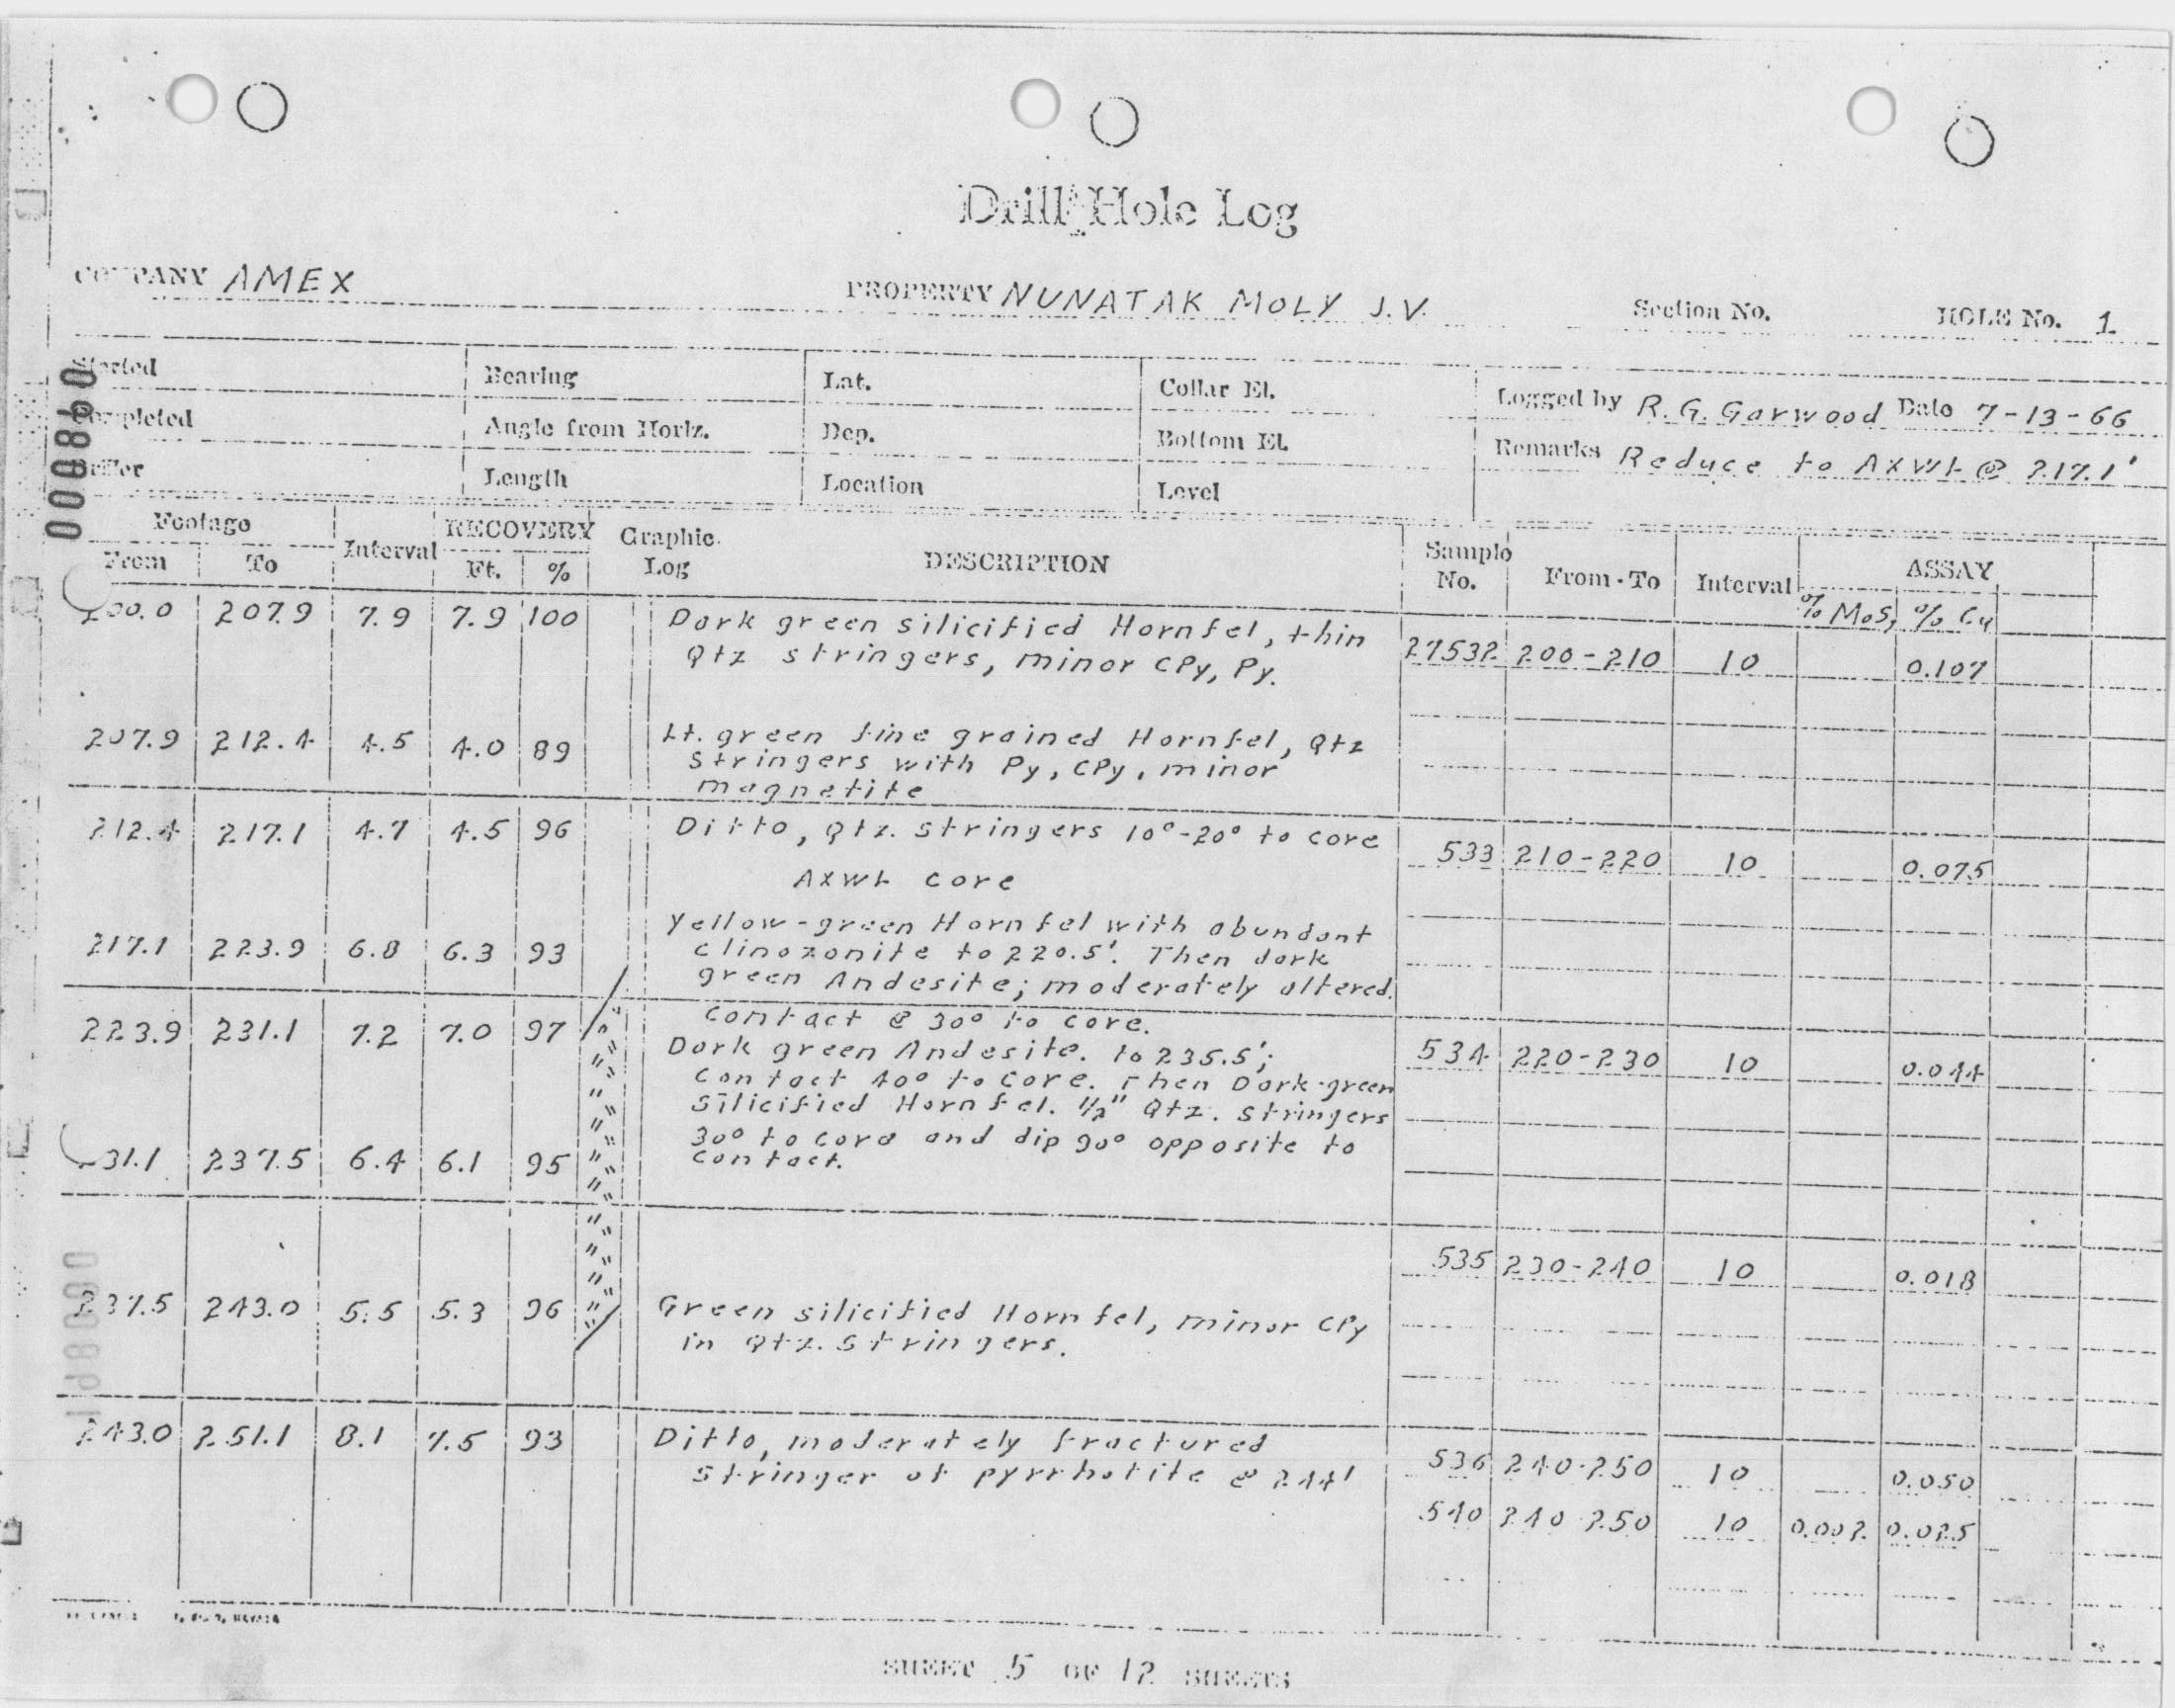 Drill Hole Log
COMPANY AMEX PROPERTY NUNATAK MOLY J.V. Section No. HOLE No. 1
Started Bearing Lat. Collar El. Logged by R. G. Garwood Date 7-13-66
Completed Angle from Horiz. Dep. Bottom El. Remarks Reduce to AXWL @ 217.1'
Driller Length Location Level
000860
Footage Interval RECOVERY Graphic Log DESCRIPTION Sample No. From-To Interval ASSAY
From To Ft. % % MoS2 % Cu
200.0 207.9 7.9 7.9 100 Dark green silicified Hornfel, thin
Qtz stringers, minor CPy, Py. 27532 200-210 10 0.107
207.9 212.4 4.5 4.0 89 Lt. green fine grained Hornfel, Qtz
stringers with Py, CPy, minor
magnetite
212.4 217.1 4.7 4.5 96 Ditto, Qtz. stringers 10°-20° to core 533 210-220 10 0.075
AXWL core
217.1 223.9 6.8 6.3 93 Yellow-green Hornfel with abundant
clinozonite to 220.5'. Then dark
green Andesite; moderately altered.
Contact @ 30° to core.
223.9 231.1 7.2 7.0 97 Dark green Andesite. to 235.5'; 534 220-230 10 0.044
Contact 40° to core. Then Dark-green
Silicified Hornfel. 1/2" Qtz. stringers
30° to core and dip 90° opposite to
231.1 237.5 6.4 6.1 95 contact.
535 230-240 10 0.018
237.5 243.0 5.5 5.3 96 Green silicified Hornfel, minor CPy
in Qtz. stringers.
243.0 251.1 8.1 7.5 93 Ditto, moderately fractured 536 240-250 10 0.050
stringer of pyrrhotite @ 244'
540 240-250 10 0.002 0.025
SHEET 5 OF 12 SHEETS